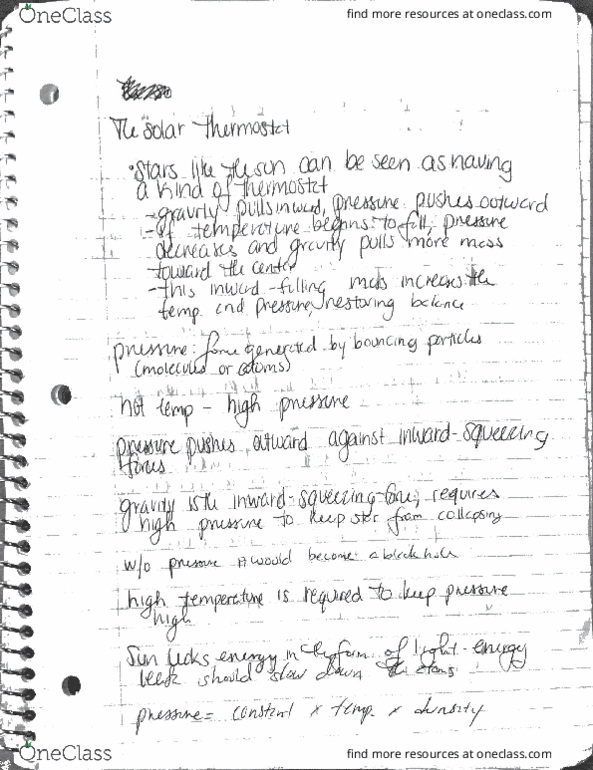 OneClass
find more resources at oneclass.com
The Solar Thermostat
• Stars like the sun can be seen as having
a kind of thermostat
- gravity pulls inward, pressure pushes outward
- if temperature begins to fall, pressure
decreases and gravity pulls more mass
toward the center
- this inward-falling mass increases the
temp. and pressure, restoring balance
pressure: force generated by bouncing particles
(molecules or atoms)
hot temp - high pressure
pressure pushes outward against inward-squeezing
forces
gravity is the inward-squeezing force; requires
high pressure to keep star from collapsing
w/o pressure it would become a black hole
high temperature is required to keep pressure
high
Sun leaks energy in the form of light - energy
leak should slow down the atoms
pressure = constant x temp. x density
OneClass
find more resources at oneclass.com